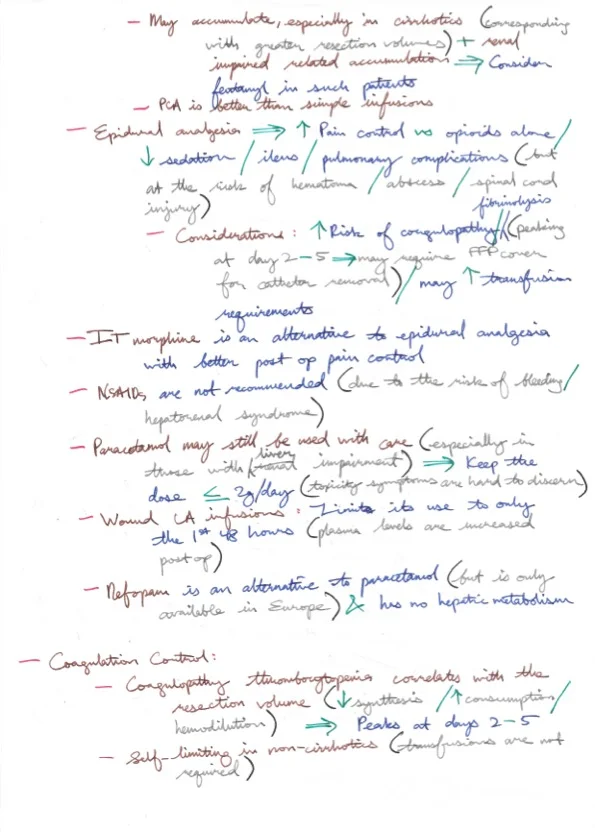 - May accumulate, especially in cirrhotics (corresponding
with greater resection volumes) + renal
impaired related accumulation ⇒ Consider
fentanyl in such patients
- PCA is better than simple infusions
- Epidural analgesia ⇒ ↑ Pain control vs opioids alone/
↓ sedation / ileus / pulmonary complications (but
at the risk of hematoma / abscess / spinal cord
injury)
fibrinolysis
- Considerations: ↑ Risk of coagulopathy / (peaking
at day 2-5 ⇒ may require FFP cover
for catheter removal) / may ↑ transfusion
requirements
- IT morphine is an alternative to epidural analgesia
with better post op pain control
- NSAIDs are not recommended (due to the risk of bleeding/
hepatorenal syndrome)
- Paracetamol may still be used with care (especially in
those with liver impairment) ⇒ Keep the
dose ≤ 2g/day (toxicity symptoms are hard to discern)
- Wound LA infusions: Limits its use to only
the 1st 48 hours (plasma levels are increased
post op)
- Nefopam is an alternative to paracetamol (but is only
available in Europe) & has no hepatic metabolism
- Coagulation Control:
- Coagulopathy thrombocytopenia correlates with the
resection volume (↓ synthesis / ↑ consumption /
hemodilution) ⇒ Peaks at days 2-5
- Self-limiting in non-cirrhotics (transfusions are not
required)